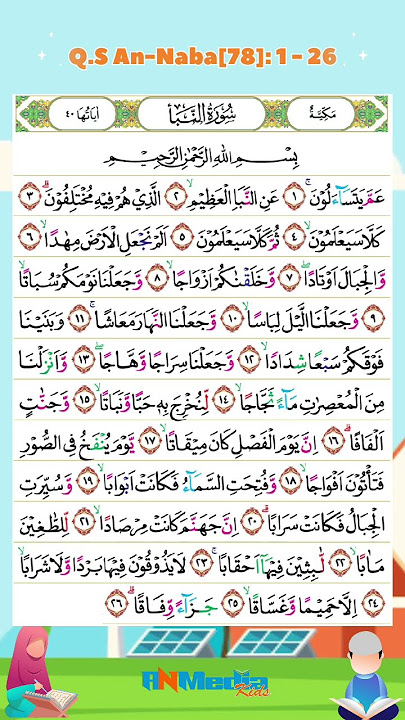 Q.S An-Naba[78]: 1 - 26
مَكِيَّةٌ سُورَةُ النَّبَأِ اٰيَاتُهَا ٤٠
بِسْمِ اللّٰهِ الرَّحْمٰنِ الرَّحِيْمِ
عَمَّ يَتَسَاۤءَلُوْنَۚ ١ عَنِ النَّبَاِ الْعَظِيْمِۙ ٢ الَّذِيْ هُمْ فِيْهِ مُخْتَلِفُوْنَۗ ٣
كَلَّا سَيَعْلَمُوْنَۙ ٤ ثُمَّ كَلَّا سَيَعْلَمُوْنَ ٥ اَلَمْ نَجْعَلِ الْاَرْضَ مِهٰدًاۙ ٦
وَّالْجِبَالَ اَوْتَادًاۖ ٧ وَّخَلَقْنٰكُمْ اَزْوَاجًاۙ ٨ وَّجَعَلْنَا نَوْمَكُمْ سُبَاتًاۙ
٩ وَّجَعَلْنَا الَّيْلَ لِبَاسًاۙ ١٠ وَّجَعَلْنَا النَّهَارَ مَعَاشًاۚ ١١ وَبَنَيْنَا
فَوْقَكُمْ سَبْعًا شِدَادًاۙ ١٢ وَّجَعَلْنَا سِرَاجًا وَّهَّاجًاۖ ١٣ وَّاَنْزَلْنَا
مِنَ الْمُعْصِرٰتِ مَاۤءً ثَجَّاجًاۙ ١٤ لِّنُخْرِجَ بِهٖ حَبًّا وَّنَبَاتًاۙ ١٥ وَّجَنّٰتٍ
اَلْفَافًاۗ ١٦ اِنَّ يَوْمَ الْفَصْلِ كَانَ مِيْقَاتًاۙ ١٧ يَّوْمَ يُنْفَخُ فِى الصُّوْرِ
فَتَأْتُوْنَ اَفْوَاجًاۙ ١٨ وَّفُتِحَتِ السَّمَاۤءُ فَكَانَتْ اَبْوَابًاۙ ١٩ وَّسُيِّرَتِ
الْجِبَالُ فَكَانَتْ سَرَابًاۗ ٢٠ اِنَّ جَهَنَّمَ كَانَتْ مِرْصَادًاۙ ٢١ لِّلطّٰغِيْنَ
مَاٰبًاۙ ٢٢ لّٰبِثِيْنَ فِيْهَآ اَحْقَابًاۚ ٢٣ لَا يَذُوْقُوْنَ فِيْهَا بَرْدًا وَّلَا شَرَابًاۙ
٢٤ اِلَّا حَمِيْمًا وَّغَسَّاقًاۙ ٢٥ جَزَاۤءً وِّفَاقًاۗ ٢٦
ANMedia
Kids